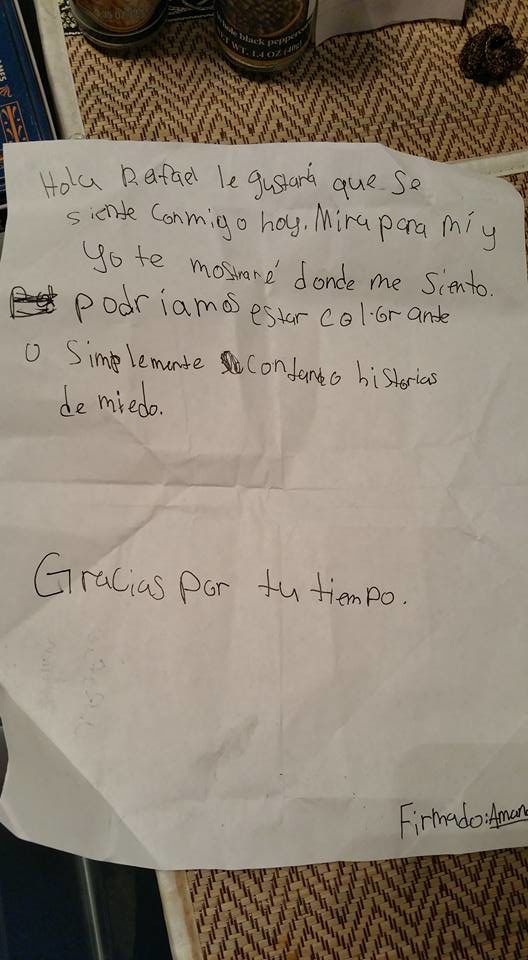 whole black pepperco
NET WT. 1.4 OZ (40g)
Hola Rafael le gustará que se
siente conmigo hoy. Mira para mí y
yo te mostraré donde me siento.
podriamos estar colorante
o simplemente contando historias
de miedo.
Gracias por tu tiempo.
Firmado: Aman